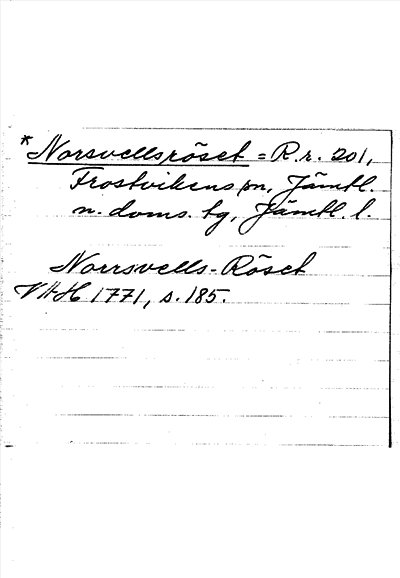 * Norsvellsröset = R.r. 201,
Frostvikens sn, Jämtl.
n. doms. tg, Jämtl. l.
Norrsvells-Röset
VHAH 1771, s. 185.